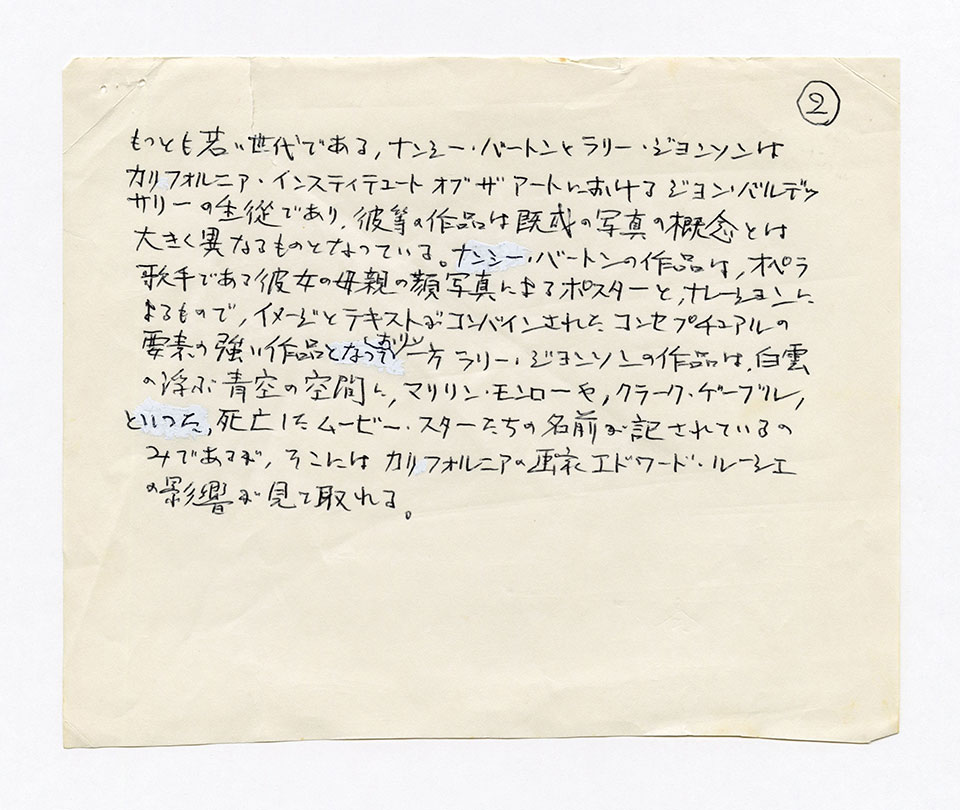 ②
もっとも若い世代である,ナンシー・バートンとラリー・ジョンソンは
カリフォルニア・インスティテュート オブ ザ アートにおけるジョン・バルデッ
サリーの生徒であり,彼等の作品は既成の写真の概念とは
大きく異なるものとなっている。ナンシー・バートンの作品は,オペラ
歌手である彼女の母親の顔写真によるポスターと,ナレーションに
よるもので,イメージとテキストがコンバインされたコンセプチュアルの
要素の強い作品となっており 一方 ラリー・ジョンソンの作品は,白雲
の浮ぶ青空の空間に,マリリン・モンローや,クラーク・ゲーブル,
といった,死亡したムービー・スターたちの名前が記されているの
みであるが,そこにはカリフォルニアの画家エドワード・ルーシェ
の影響が見て取れる。